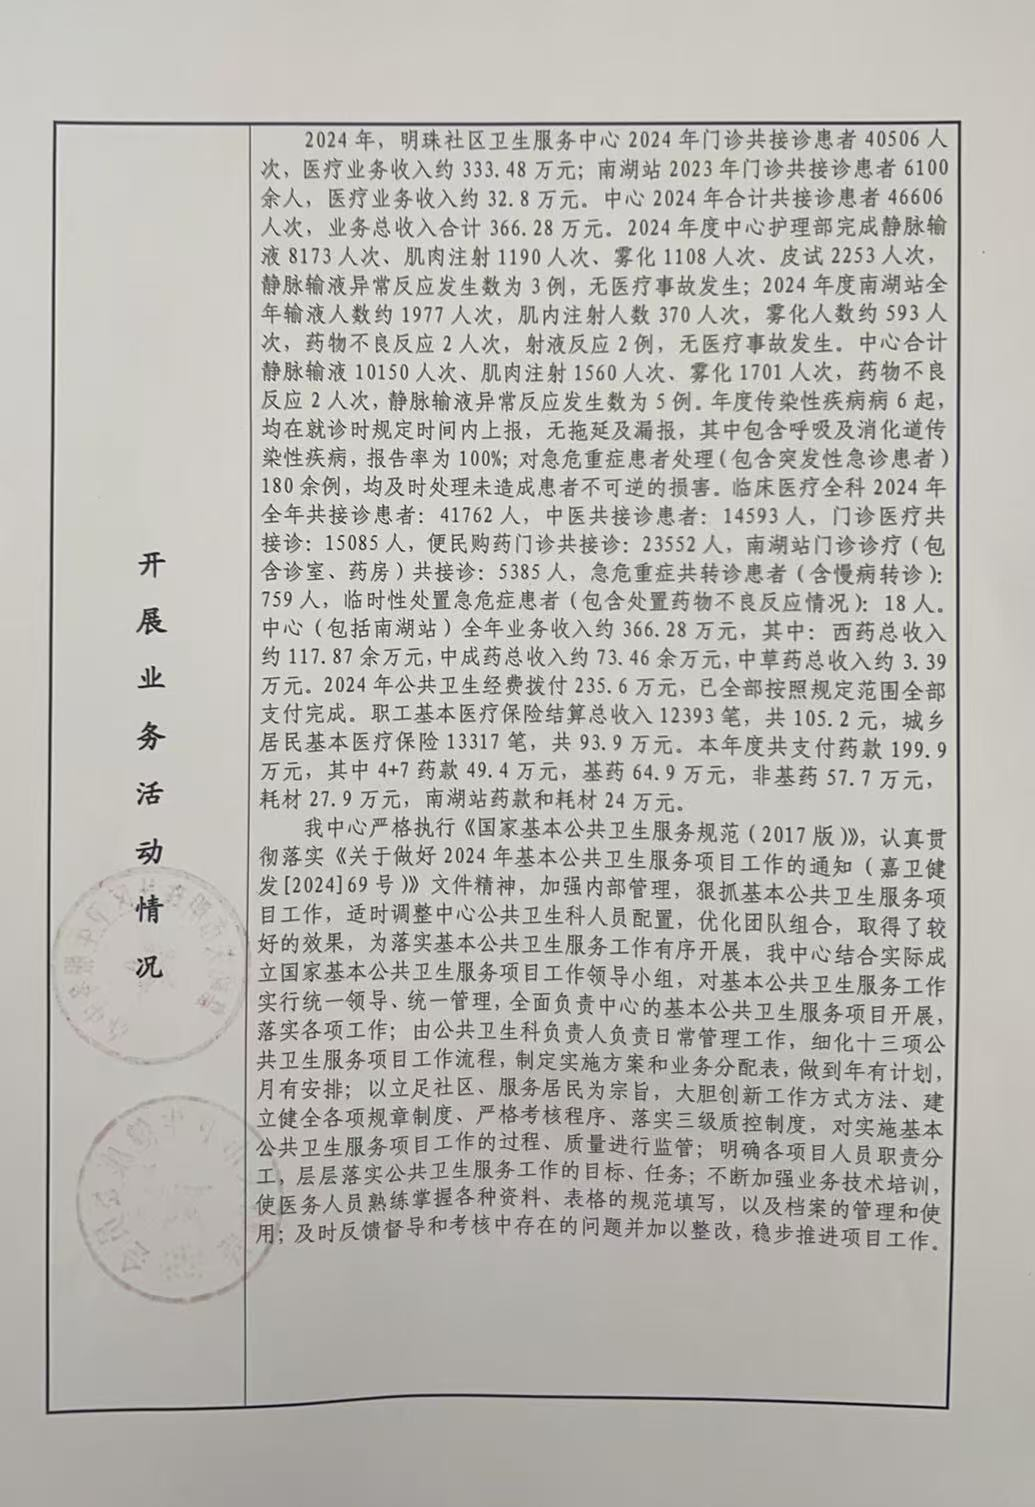 开展业务活动情况
2024年，明珠社区卫生服务中心2024年门诊共接诊患者40506人
次，医疗业务收入约333.48万元；南湖站2023年门诊共接诊患者6100
余人，医疗业务收入约32.8万元。中心2024年合计共接诊患者46606
人次，业务总收入合计366.28万元。2024年度中心护理部完成静脉输
液8173人次、肌肉注射1190人次、雾化1108人次、皮试2253人次，
静脉输液异常反应发生数为3例，无医疗事故发生；2024年度南湖站全
年输液人数约1977人次，肌内注射人数370人次，雾化人数约593人
次，药物不良反应2人次，射液反应2例，无医疗事故发生。中心合计
静脉输液10150人次、肌肉注射1560人次、雾化1701人次，药物不良
反应2人次，静脉输液异常反应发生数为5例。年度传染性疾病病6起，
均在就诊时规定时间内上报，无拖延及漏报，其中包含呼吸及消化道传
染性疾病，报告率为100%；对急危重症患者处理(包含突发性急诊患者)
180余例，均及时处理未造成患者不可逆的损害。临床医疗全科2024年
全年共接诊患者：41762人，中医共接诊患者：14593人，门诊医疗共
接诊：15085人，便民购药门诊共接诊：23552人，南湖站门诊诊疗（包
含诊室、药房）共接诊：5385人，急危重症共转诊患者（含慢病转诊）：
759人，临时性处置急危症患者（包含处置药物不良反应情况）：18人。
中心（包括南湖站）全年业务收入约366.28万元，其中：西药总收入
约117.87余万元，中成药总收入约73.46余万元，中草药总收入约3.39
万元。2024年公共卫生经费拨付235.6万元，已全部按照规定范围全部
支付完成。职工基本医疗保险结算总收入12393笔，共105.2元，城乡
居民基本医疗保险13317笔，共93.9万元。本年度共支付药款199.9
万元，其中4+7药款49.4万元，基药64.9万元，非基药57.7万元，
耗材27.9万元，南湖站药款和耗材24万元。
我中心严格执行《国家基本公共卫生服务规范（2017版）》，认真贯
彻落实《关于做好2024年基本公共卫生服务项目工作的通知（嘉卫健
发[2024]69号）》文件精神，加强内部管理，狠抓基本公共卫生服务项
目工作，适时调整中心公共卫生科人员配置，优化团队组合，取得了较
好的效果，为落实基本公共卫生服务工作有序开展，我中心结合实际成
立国家基本公共卫生服务项目工作领导小组，对基本公共卫生服务工作
实行统一领导、统一管理，全面负责中心的基本公共卫生服务项目开展，
落实各项工作；由公共卫生科负责人负责日常管理工作，细化十三项公
共卫生服务项目工作流程，制定实施方案和业务分配表，做到年有计划，
月有安排；以立足社区、服务居民为宗旨，大胆创新工作方式方法、建
立健全各项规章制度、严格考核程序、落实三级质控制度，对实施基本
公共卫生服务项目工作的过程、质量进行监管；明确各项目人员职责分
工，层层落实公共卫生服务工作的目标、任务；不断加强业务技术培训，
使医务人员熟练掌握各种资料、表格的规范填写，以及档案的管理和使
用；及时反馈督导和考核中存在的问题并加以整改，稳步推进项目工作。